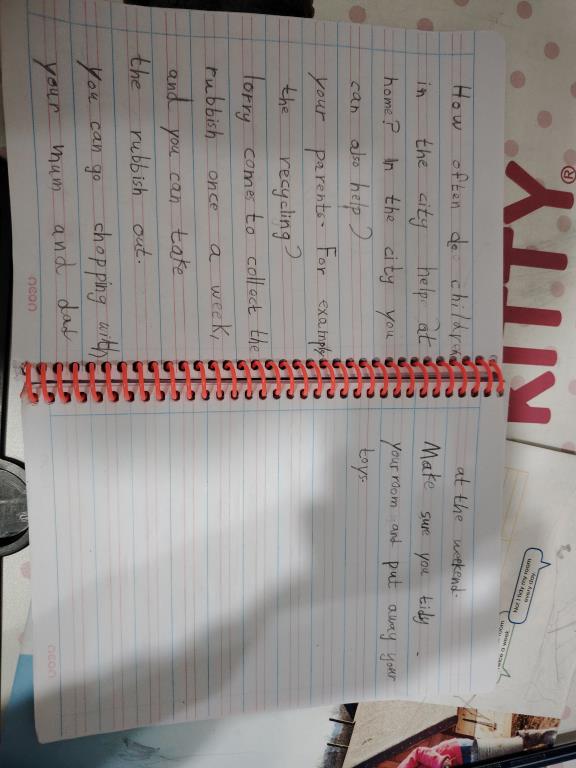 How often do children
in the city help at
home? In the city you
can also help?
your parents. For example
the recycling?
lorry comes to collect the
rubbish once a week,
and you can take
the rubbish out.
you can go chopping with
your mum and dad
at the weekend.
Make sure you tidy
your room and put away your
toys.
KITTY®